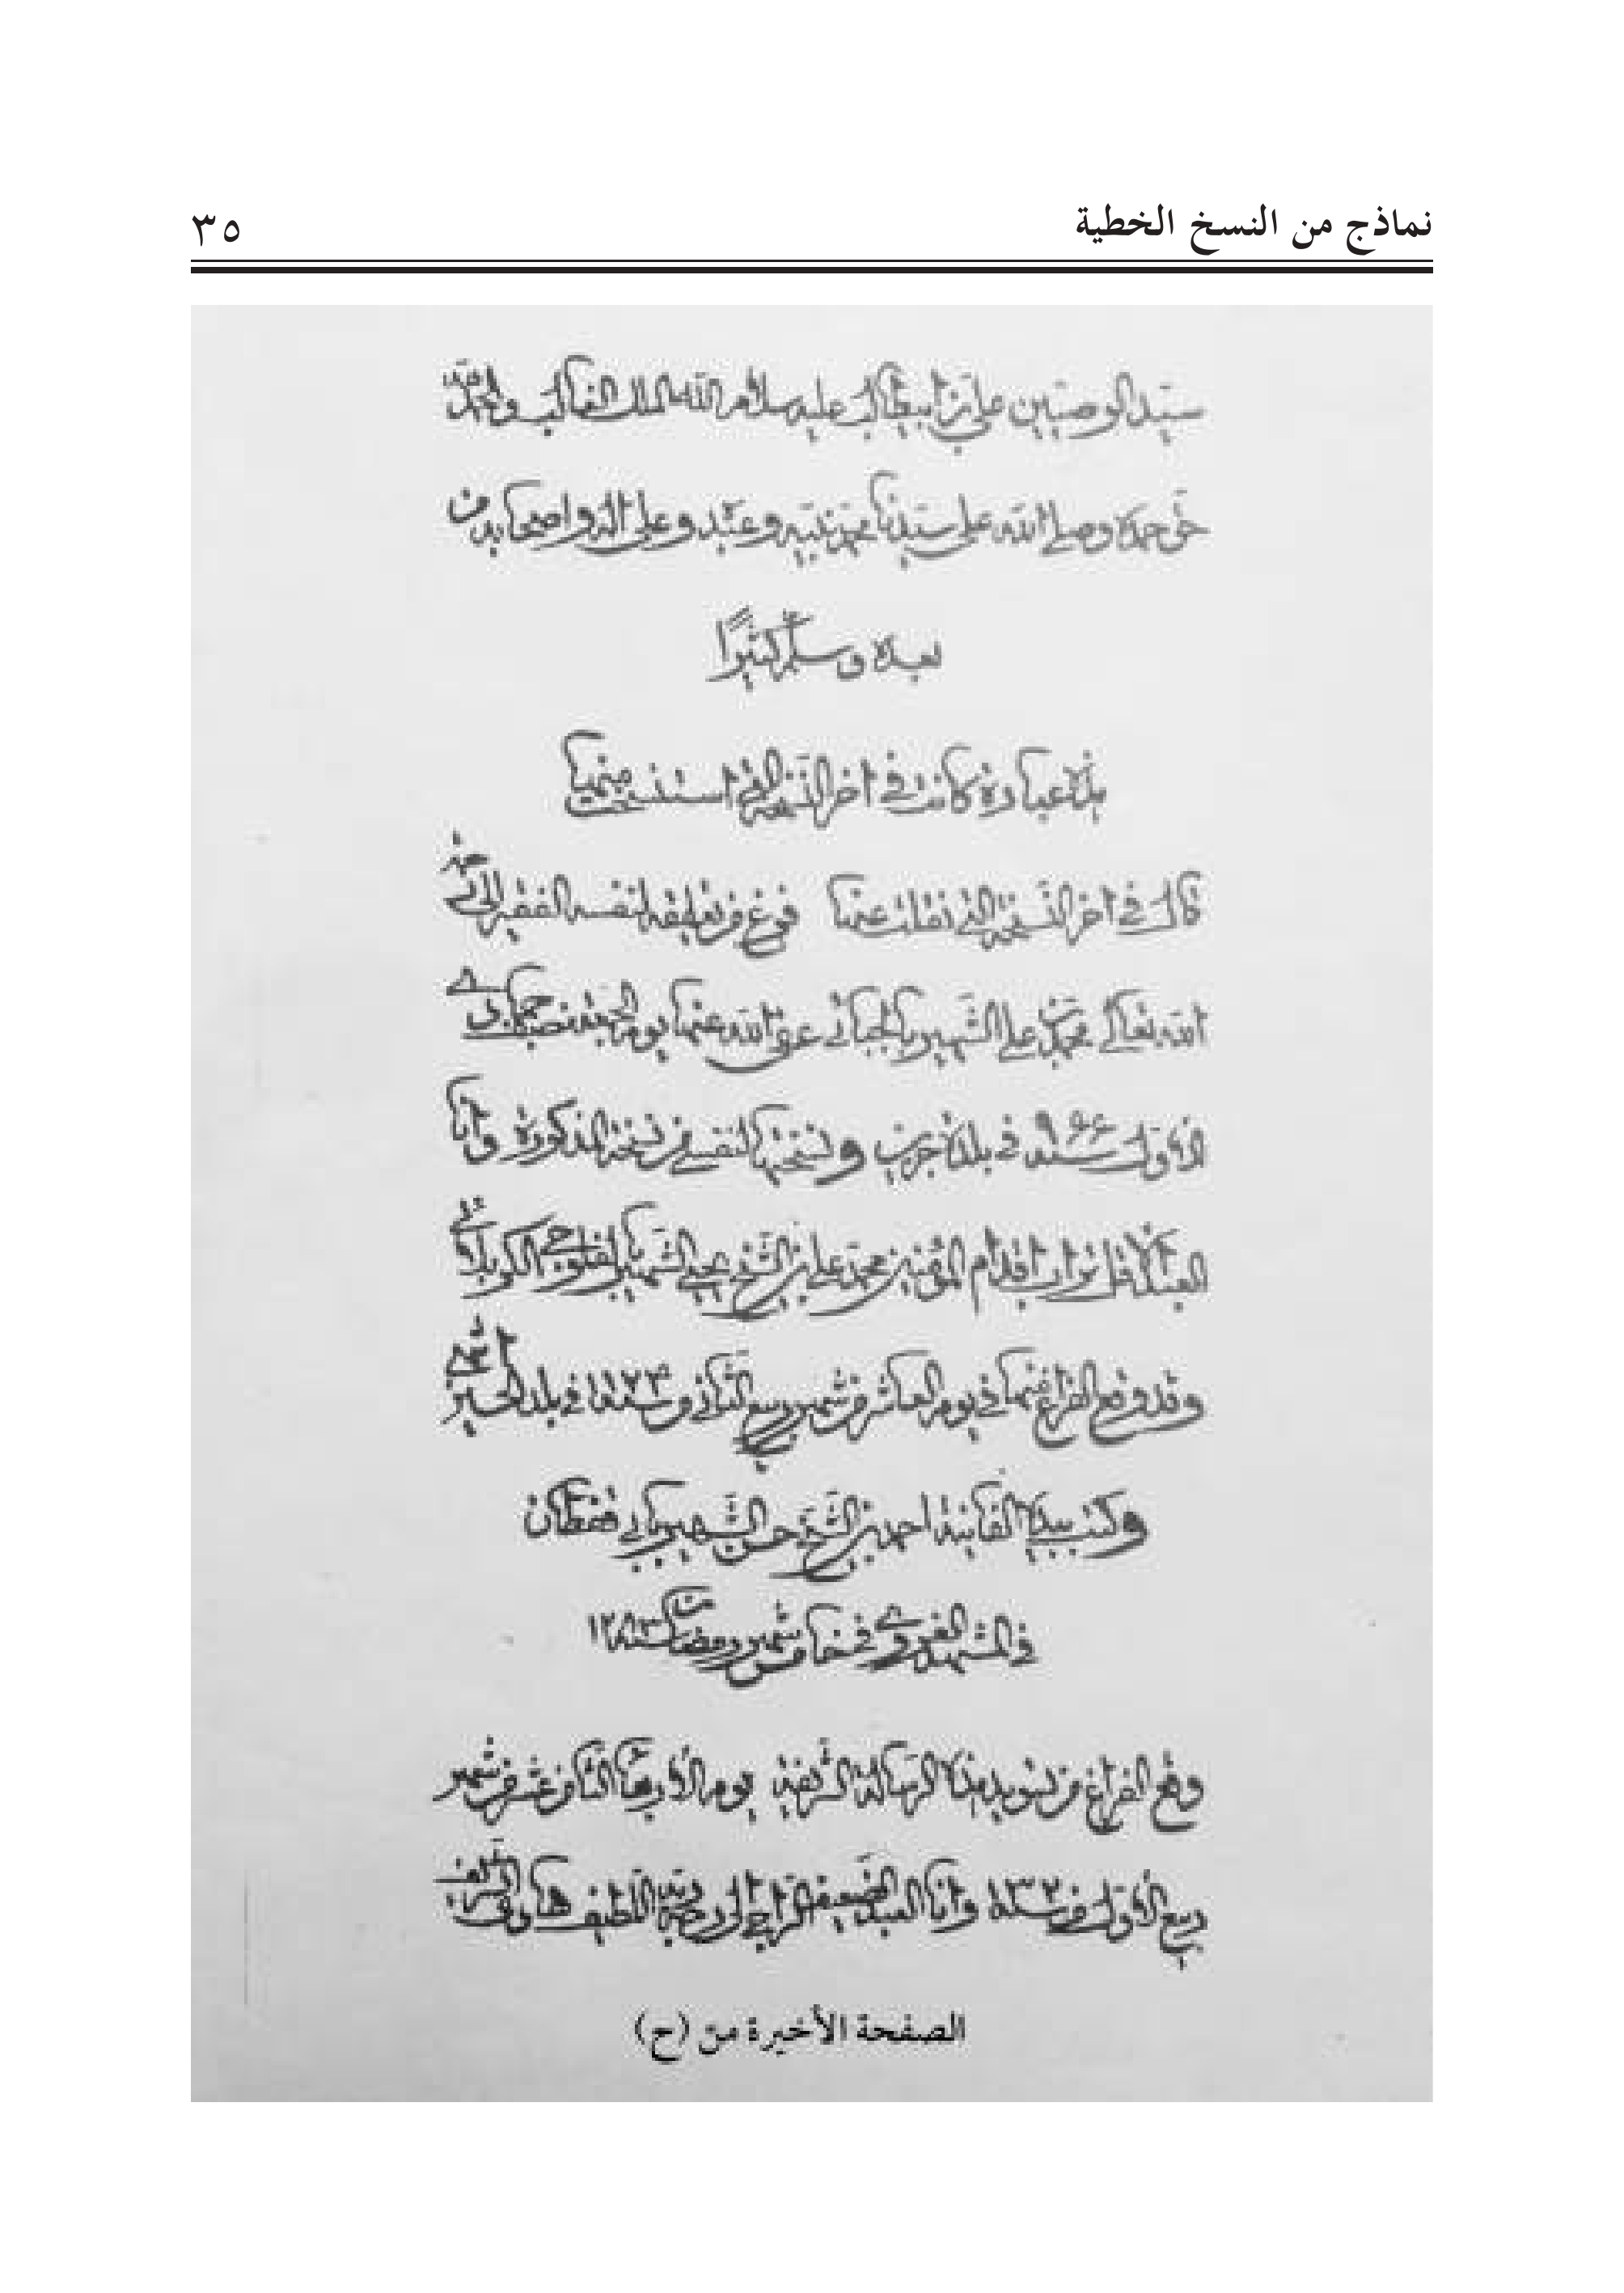 نماذج من النسخ الخطية
٣٥
سيد الوصيين علي بن أبيطالب عليه سلام الله الملك الغالب والحمد لله
حق حمده وصلى الله على سيدنا محمد نبيه وعبده وعلى اله واصحابه من
بعده وسلم كثيرًا
هذه عبارة كانت في اخر النسخة التي استنسخت منها
قال في اخر النسخة التي نقلت عنها فرغ من تعليقه لنفسه الفقير إلى رحمة
الله تعالى محمد بن علي الشهير بالجباني عفى الله عنهما يوم الجمعة نصف جمادى
الأول سنة ٩٦٦ في بلدة ونسختها لنفسي من نسخة المذكورة وأنا
العبد الأقل تراب اقدام المؤمنين محمد علي بن الشيخ يحيى الشهير الكربلائي
وقد وقع الفراغ عنها في يوم العاشر من شهر ربيع الثاني في بلد الحسين
وكتب بيده الفانية احمد بن الشيخ حسن الشهير بابي قفطان
في المشهد الغروي في خامس شهر رمضان سنة ١٢٨٣
وقع الفراغ من تسويد هذه الرسالة الشريفة يوم الأربعاء الثامن عشر من شهر
ربيع الأول من سنة وأنا العبد الضعيف الراجي إلى رحمة ربه اللطيف
الصفحة الأخيرة من (ح)